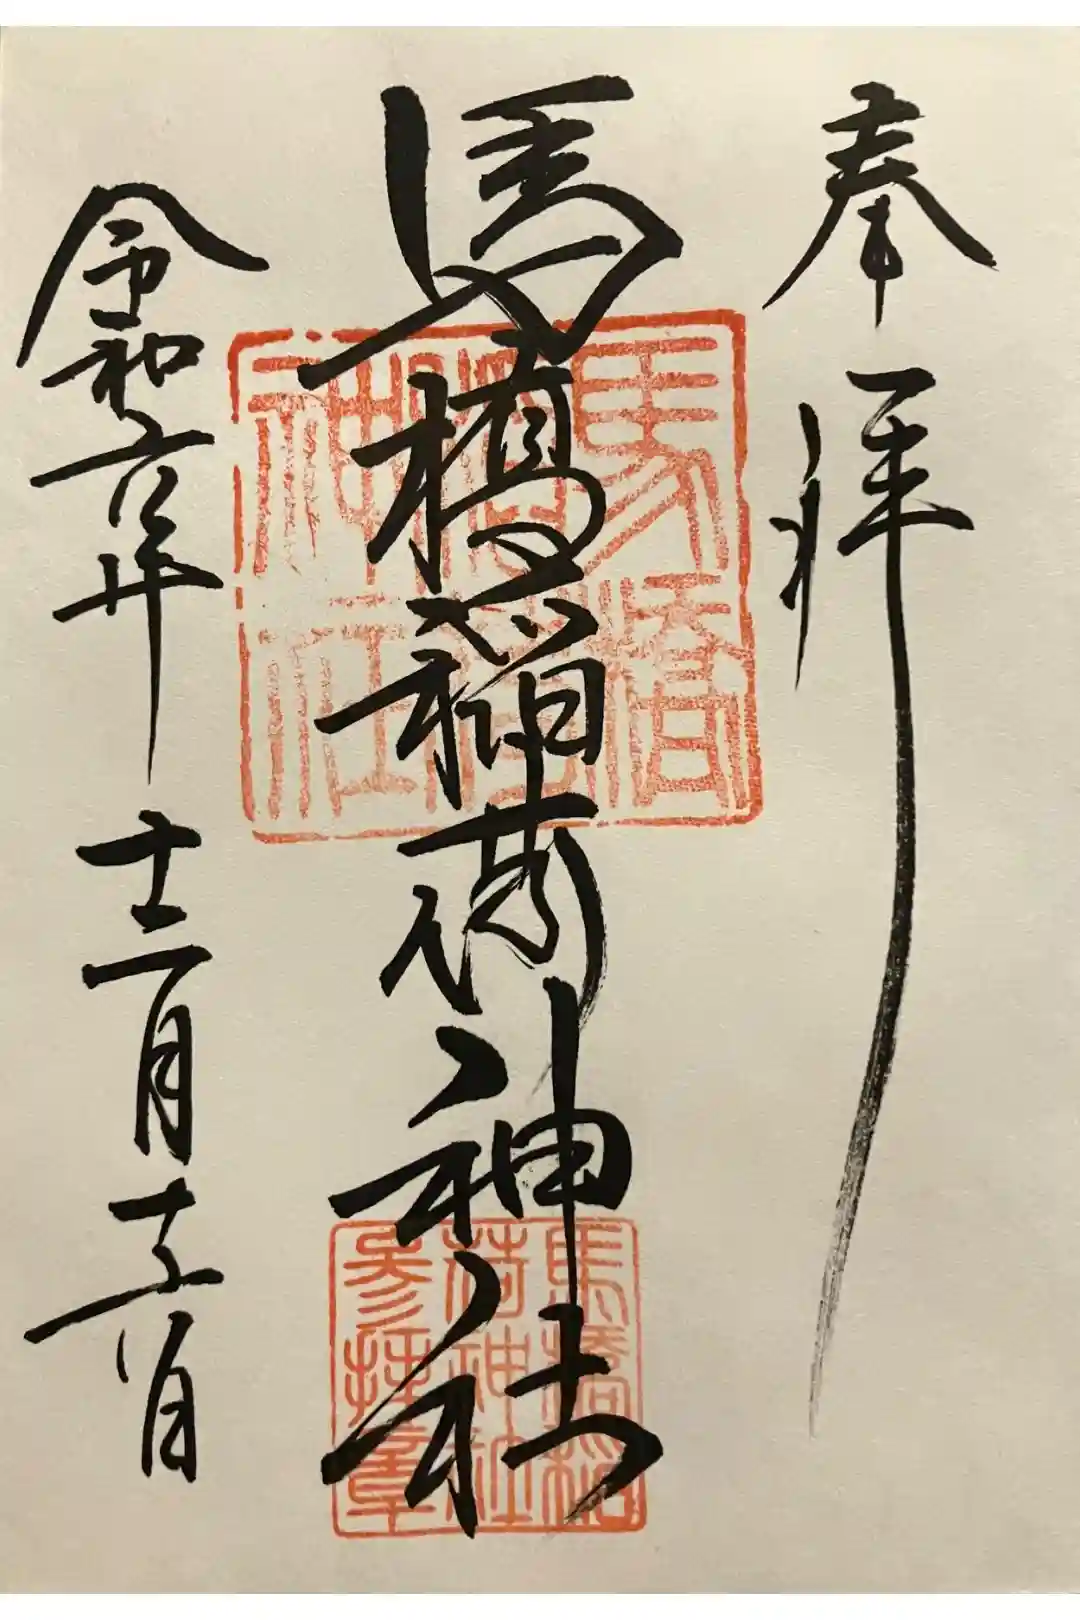 奉拝
馬橋稲荷神社
令和六年十二月十六日
馬橋
稲荷
神社
馬橋稲
荷神社
参拝章